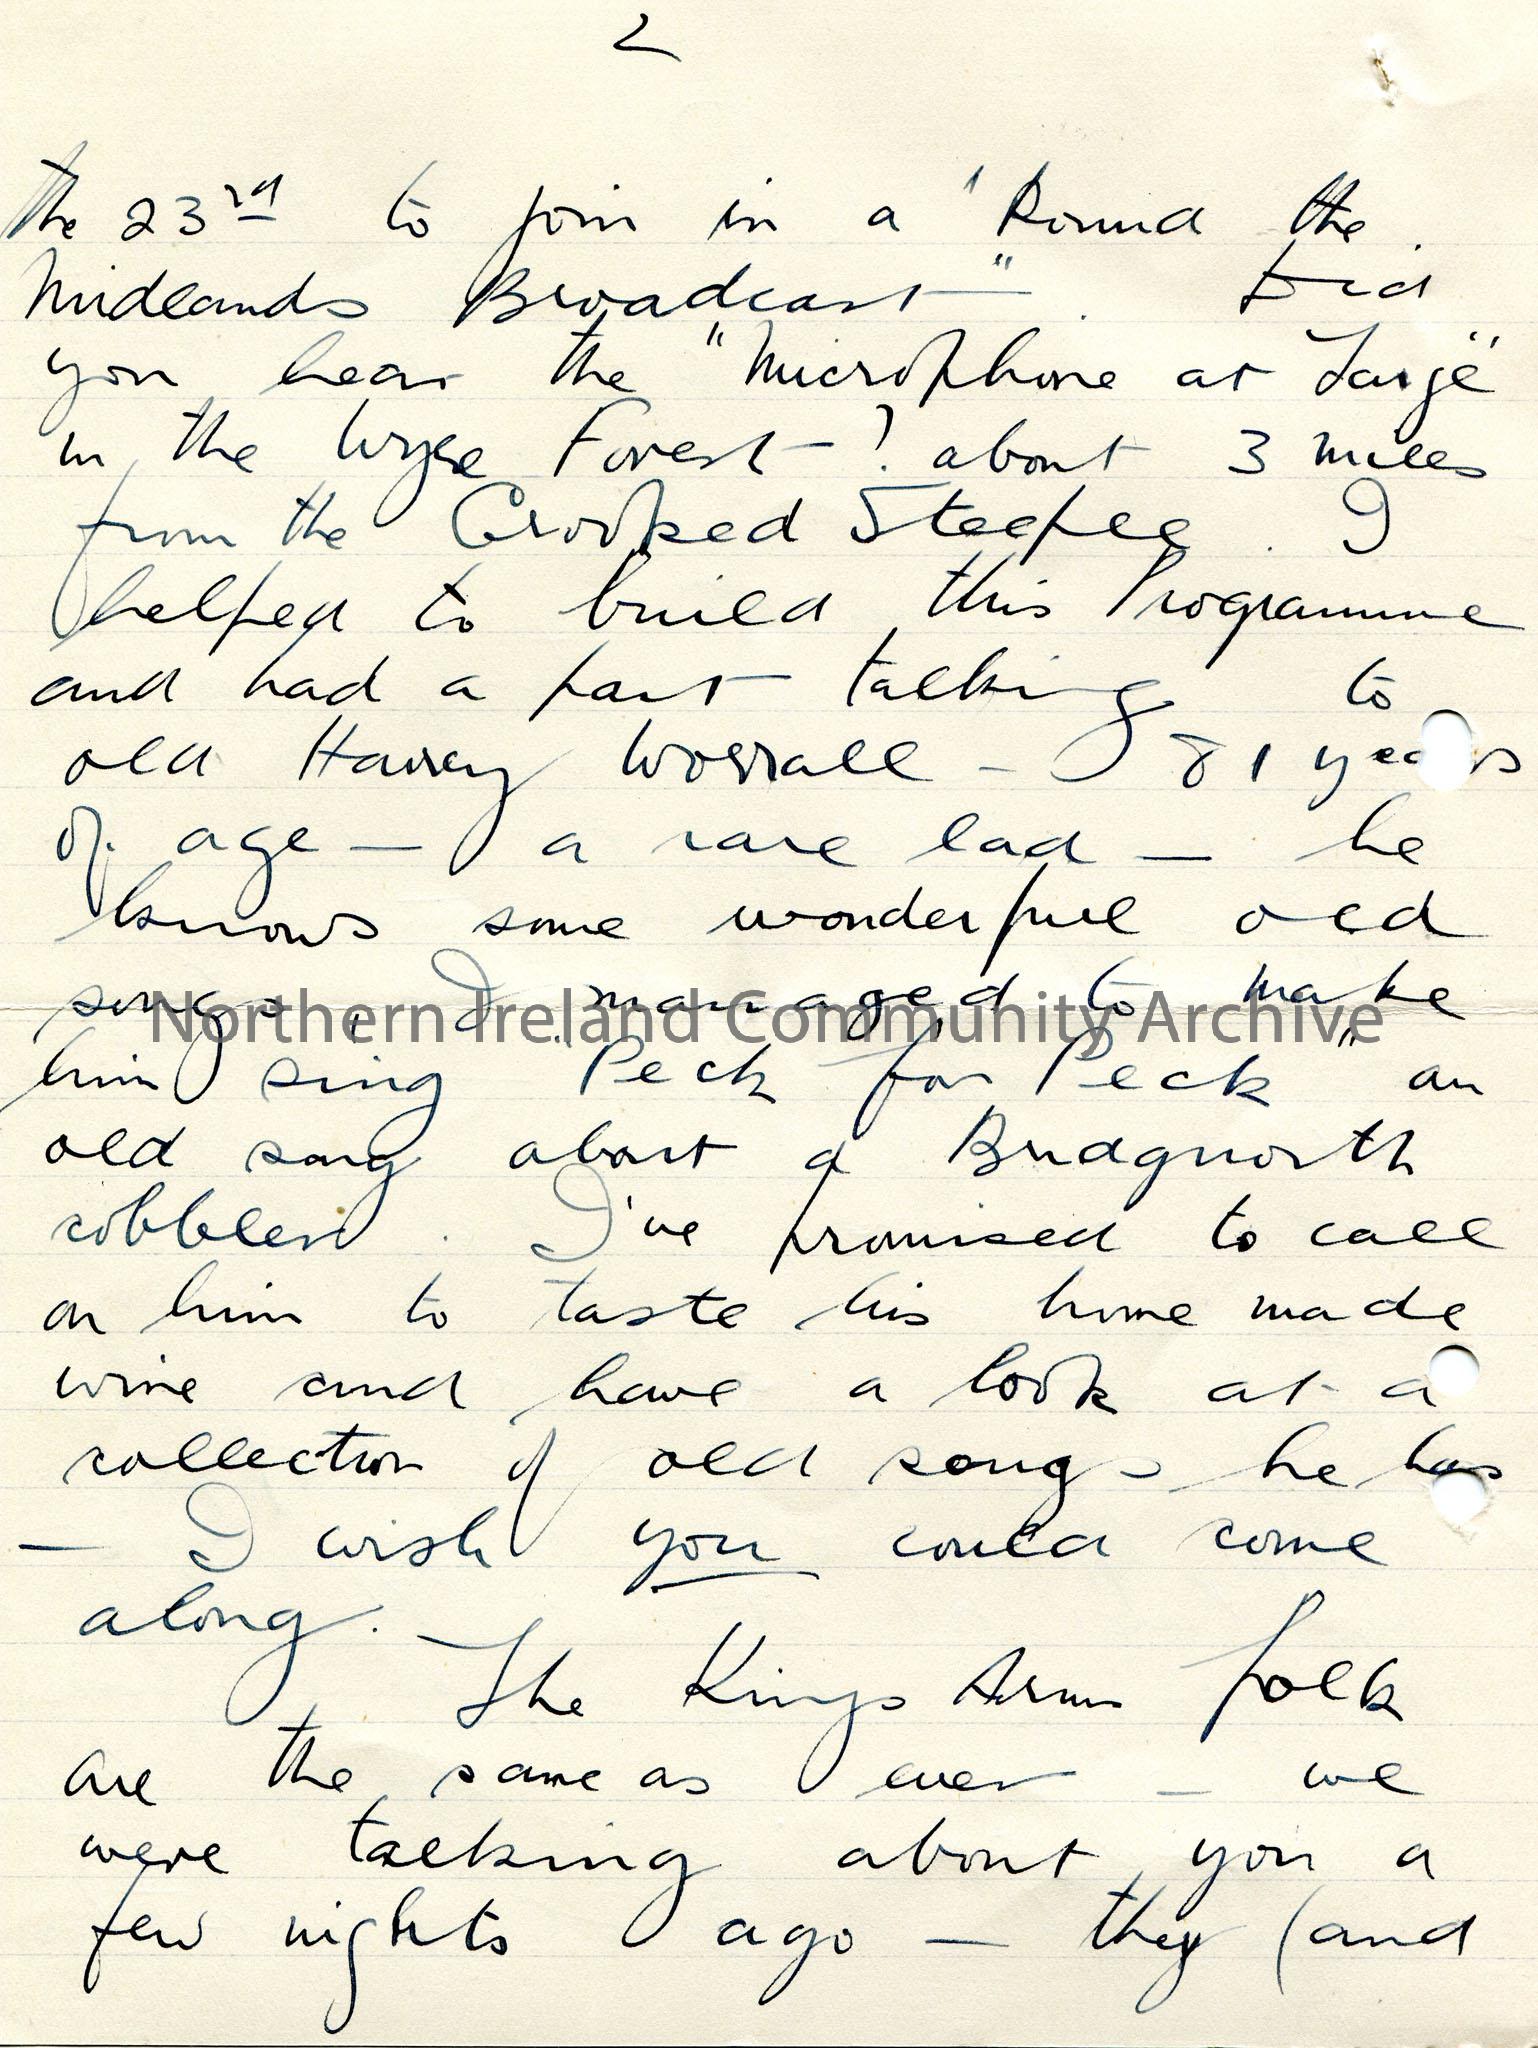 2
the 23rd to join in a "Round the
Midlands Broadcast". Did
you hear the "Microphone at Large"
in the Wyre Forest? about 3 miles
from the Crooked Steeple. I
helped to build this Programme
and had a part talking to
old Harry Worrall - 81 years
of age — a rare lad — he
knows some wonderful old
songs, I managed to make
Northern Ireland Community Archive
him sing "Peck for Peck" an
old song about a Bridgnorth
cobbler. I've promised to call
on him to taste his home made
wine and have a look at a
collection of old songs he has
— I wish you could come
along.
The Kings Arms folk
are the same as ever - we
were talking about you a
few nights ago — they (and